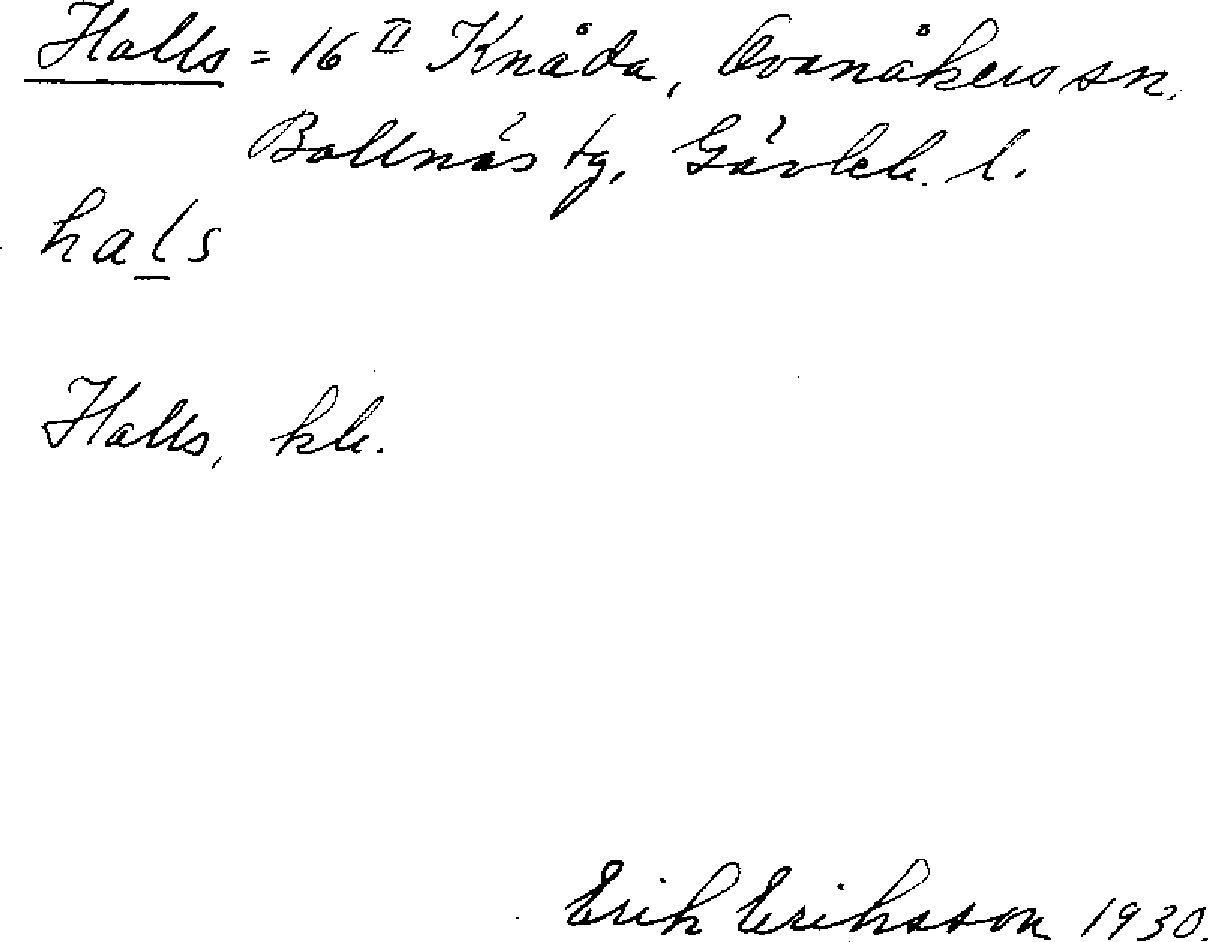 Halls = 16 II Knåda, Ovanåkers sn.
Bollnäs tg, Gävleb. l.
hals
Halls, kb.
Erik Eriksson 1930.